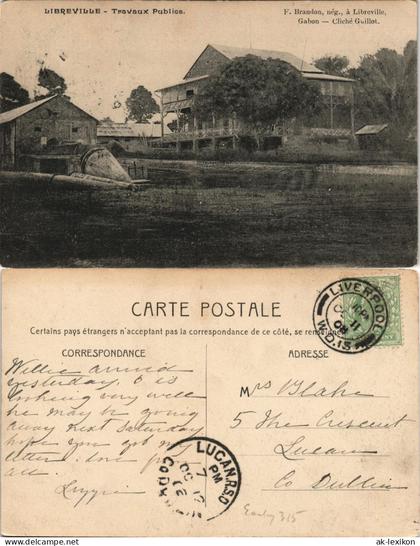 LIBREVILLE - Travaux Publics.
F. Brandon, nég., à Libreville,
Gabon - Cliché Guillot.
CARTE POSTALE
Certains pays étrangers n'acceptent pas la correspondance de ce côté, se renseigner
CORRESPONDANCE
ADRESSE
Willie arrived
yesterday, & is
looking very well
he may be going
away next Saturday
hope you got my
letter. love for
all.
Mrs Blake
5 The Crescent
Lucan
Co Dublin
Early 315
LIVERPOOL
W.D.13
LUCAN.R.S.O
7 PM